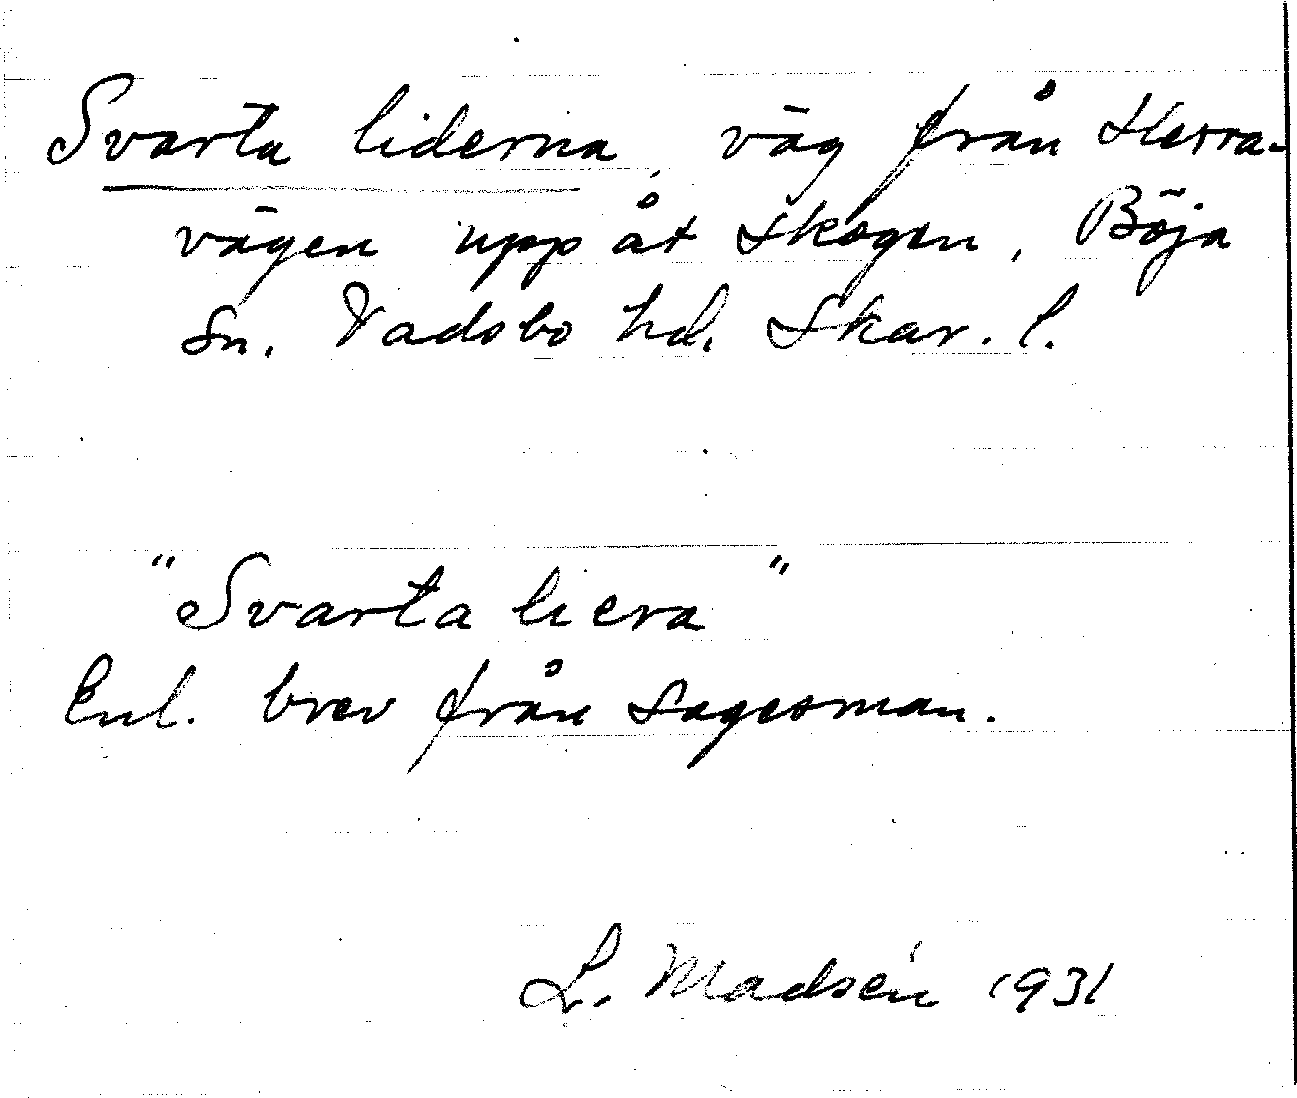 Svarta liderna, väg från Herra-
vägen upp åt skogen, Böja
sn. Vadsbo hd. Skar. l.
"Svarta liera"
Enl. brev från sagesman.
L. Madsén 1931